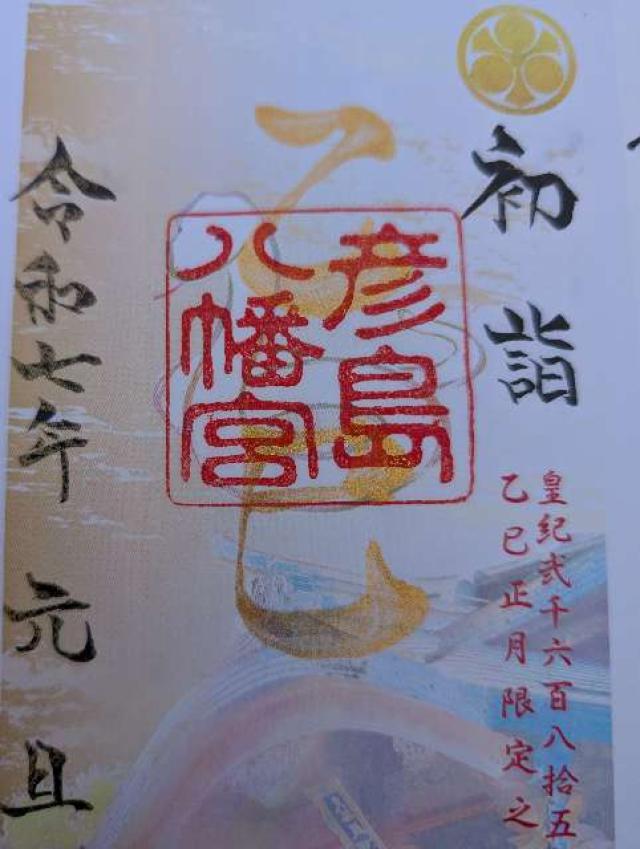 初詣
皇紀弐千六百八拾五
乙巳正月限定之
乙巳
彦島
八幡宮
令和七年 元旦